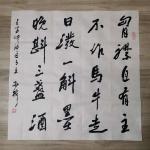 胷襟自有主
不作馬牛走
日潑一斛墨
晚斟三盞酒